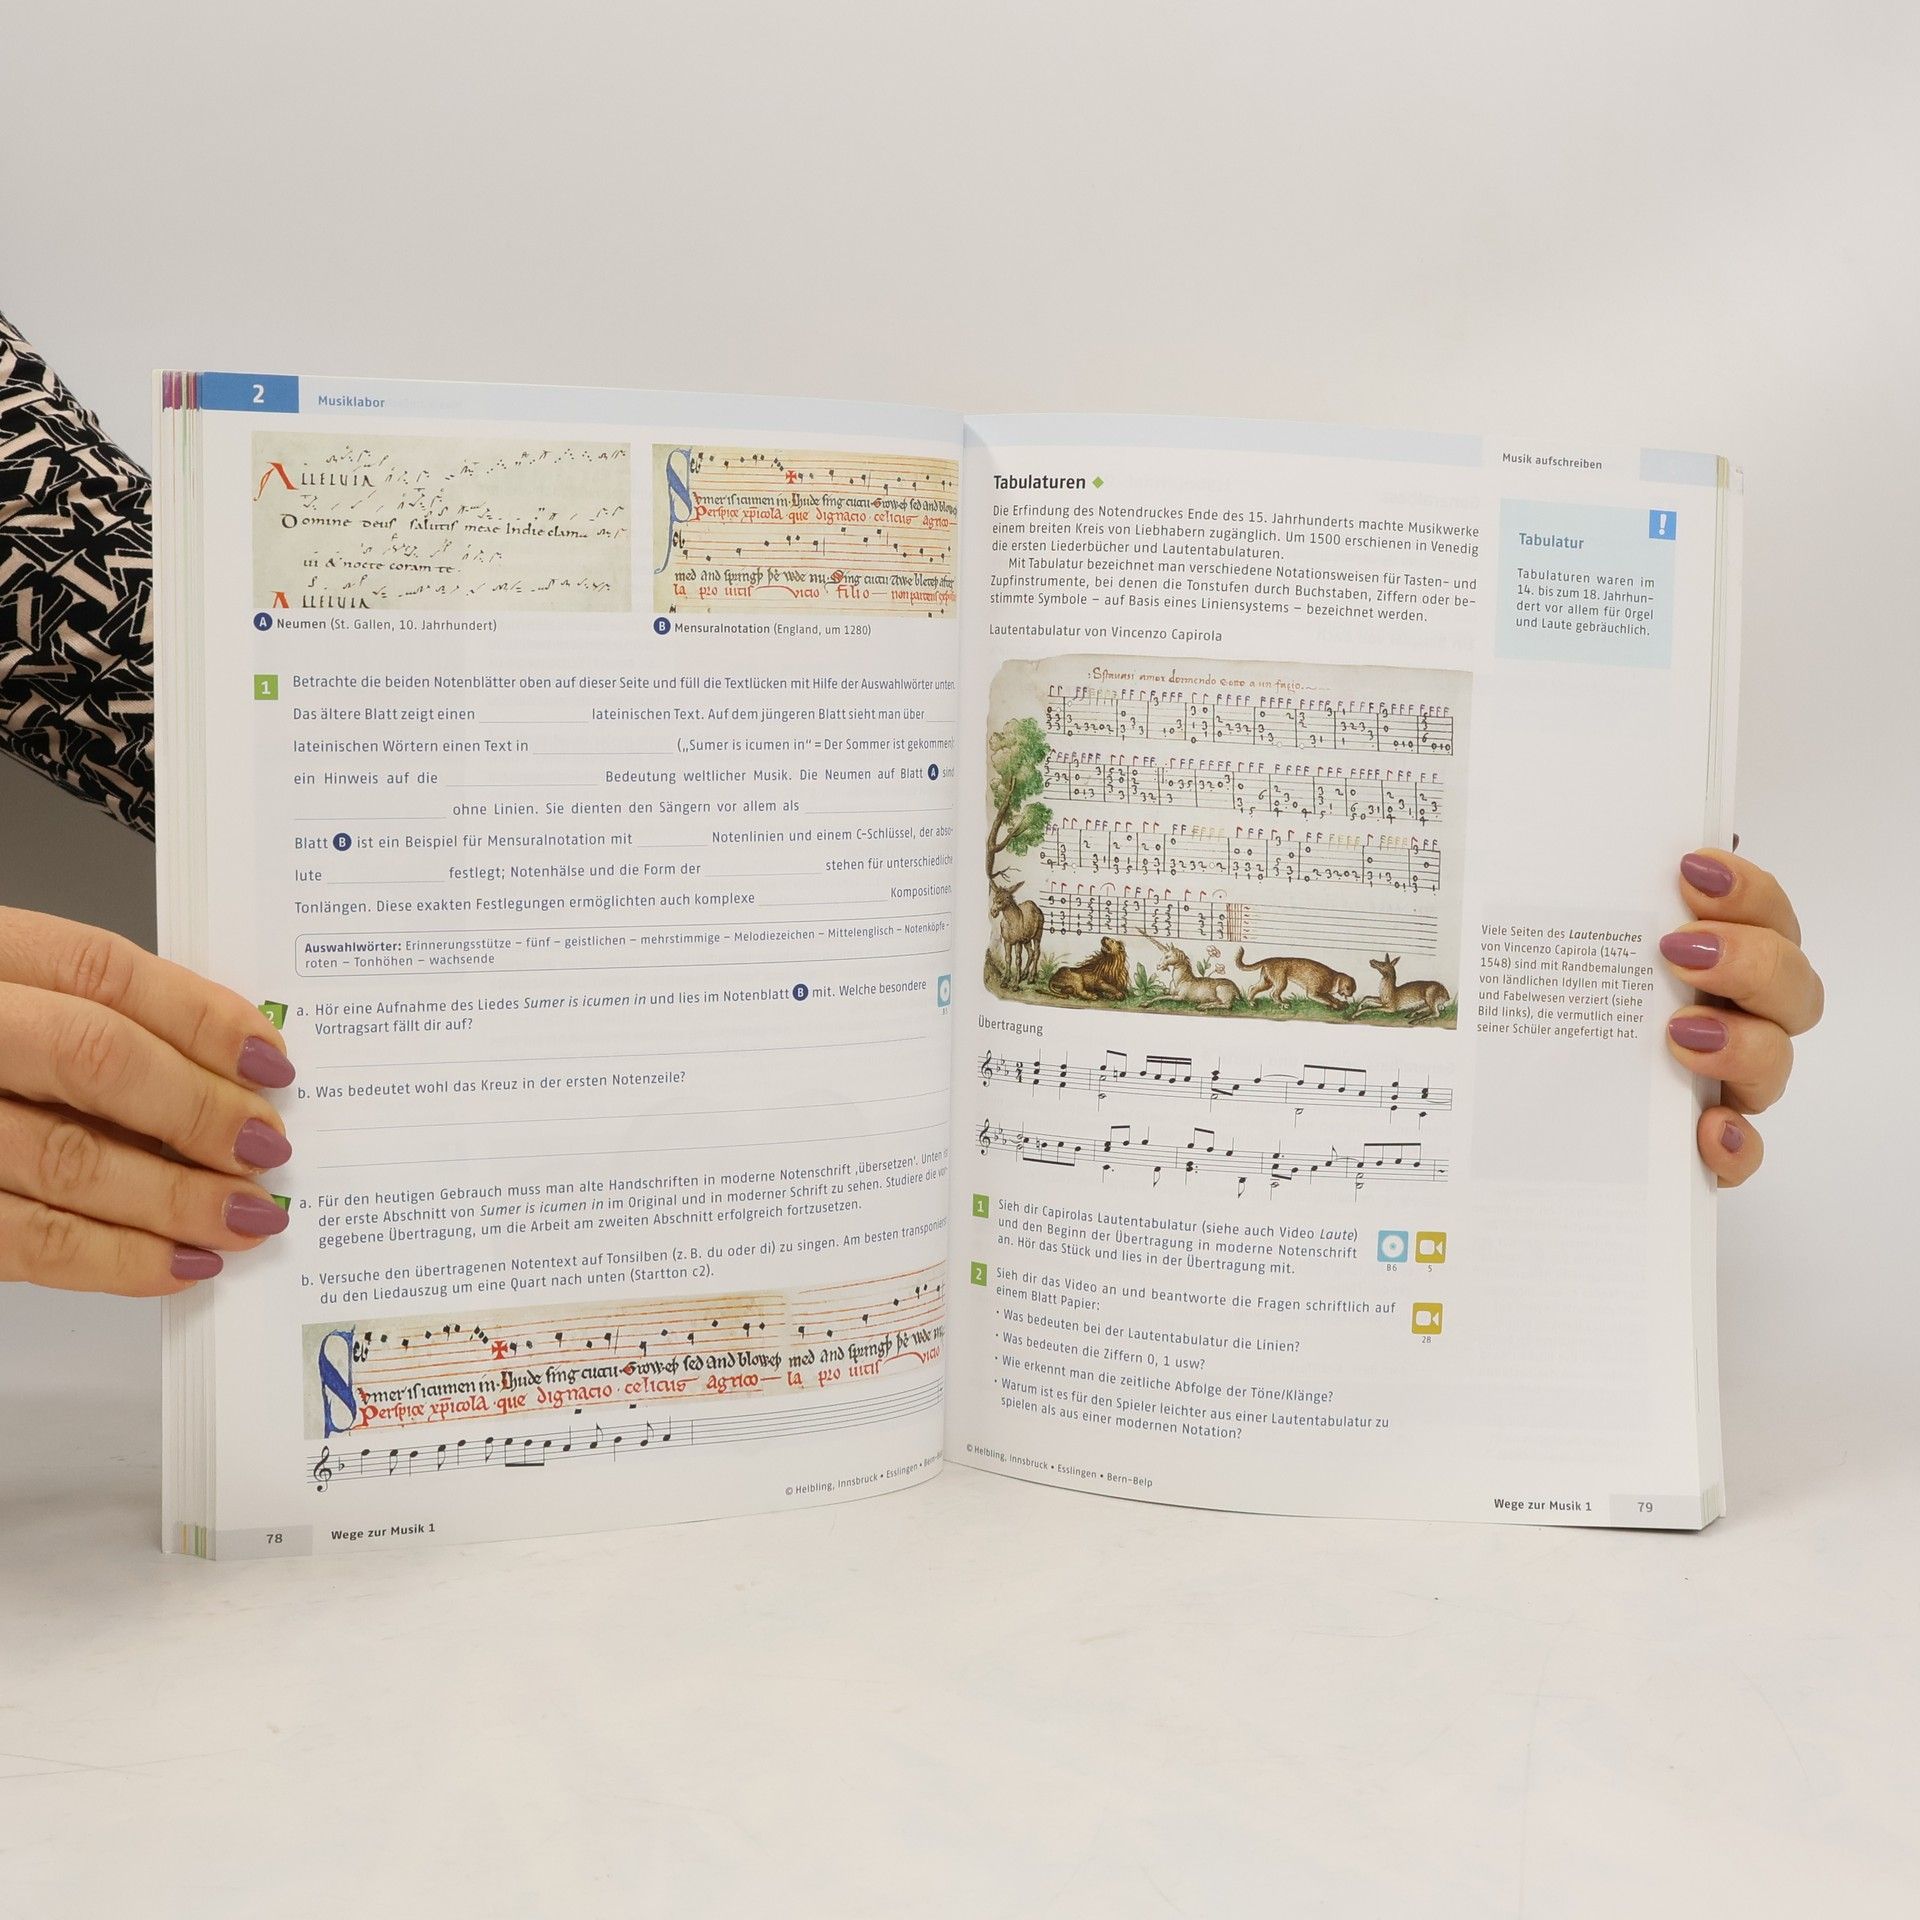 2
Musiklabor
ALLELUIA
Domine deus salutis meae In die clama
ui & nocte coram te.
ALLELUIA
A Neumen (St. Gallen, 10. Jahrhundert)
B Mensuralnotation (England, um 1280)
1 Betrachte die beiden Notenblätter oben auf dieser Seite und füll die Textlücken mit Hilfe der Auswahlwörter unten.
Das ältere Blatt zeigt einen lateinischen Text. Auf dem jüngeren Blatt sieht man über
lateinischen Wörtern einen Text in („Sumer is icumen in“ = Der Sommer ist gekommen)
ein Hinweis auf die Bedeutung weltlicher Musik. Die Neumen auf Blatt A sind
ohne Linien. Sie dienten den Sängern vor allem als
Blatt B ist ein Beispiel für Mensuralnotation mit Notenlinien und einem C-Schlüssel, der abso-
lute festlegt; Notenhälse und die Form der stehen für unterschiedliche
Tonlängen. Diese exakten Festlegungen ermöglichten auch komplexe Kompositionen.
Auswahlwörter: Erinnerungsstütze – fünf – geistlichen – mehrstimmige – Melodiezeichen – Mittelenglisch – Notenköpfe –
roten – Tonhöhen – wachsende
2 a. Hör eine Aufnahme des Liedes Sumer is icumen in und lies im Notenblatt B mit. Welche besondere
Vortragsart fällt dir auf?
b. Was bedeutet wohl das Kreuz in der ersten Notenzeile?
a. Für den heutigen Gebrauch muss man alte Handschriften in moderne Notenschrift ‚übersetzen‘. Unten ist
der erste Abschnitt von Sumer is icumen in im Original und in moderner Schrift zu sehen. Studiere die vor-
gegebene Übertragung, um die Arbeit am zweiten Abschnitt erfolgreich fortzusetzen.
b. Versuche den übertragenen Notentext auf Tonsilben (z. B. du oder di) zu singen. Am besten transponierst
du den Liedauszug um eine Quart nach unten (Startton c2).
© Helbling, Innsbruck • Esslingen • Bern-Belp
78
Wege zur Musik 1
Musik aufschreiben
Tabulaturen
Die Erfindung des Notendruckes Ende des 15. Jahrhunderts machte Musikwerke
einem breiten Kreis von Liebhabern zugänglich. Um 1500 erschienen in Venedig
die ersten Liederbücher und Lautentabulaturen.
Mit Tabulatur bezeichnet man verschiedene Notationsweisen für Tasten- und
Zupfinstrumente, bei denen die Tonstufen durch Buchstaben, Ziffern oder be-
stimmte Symbole – auf Basis eines Liniensystems – bezeichnet werden.
Lautentabulatur von Vincenzo Capirola
!
Tabulatur
Tabulaturen waren im
14. bis zum 18. Jahrhun-
dert vor allem für Orgel
und Laute gebräuchlich.
Viele Seiten des Lautenbuches
von Vincenzo Capirola (1474–
1548) sind mit Randbemalungen
von ländlichen Idyllen mit Tieren
und Fabelwesen verziert (siehe
Bild links), die vermutlich einer
seiner Schüler angefertigt hat.
Übertragung
1 Sieh dir Capirolas Lautentabulatur (siehe auch Video Laute)
und den Beginn der Übertragung in moderne Notenschrift
an. Hör das Stück und lies in der Übertragung mit.
B6
5
2 Sieh dir das Video an und beantworte die Fragen schriftlich auf
einem Blatt Papier:
28
• Was bedeuten bei der Lautentabulatur die Linien?
• Was bedeuten die Ziffern 0, 1 usw?
• Wie erkennt man die zeitliche Abfolge der Töne/Klänge?
• Warum ist es für den Spieler leichter aus einer Lautentabulatur zu
spielen als aus einer modernen Notation?
© Helbling, Innsbruck • Esslingen • Bern-Belp
Wege zur Musik 1
79